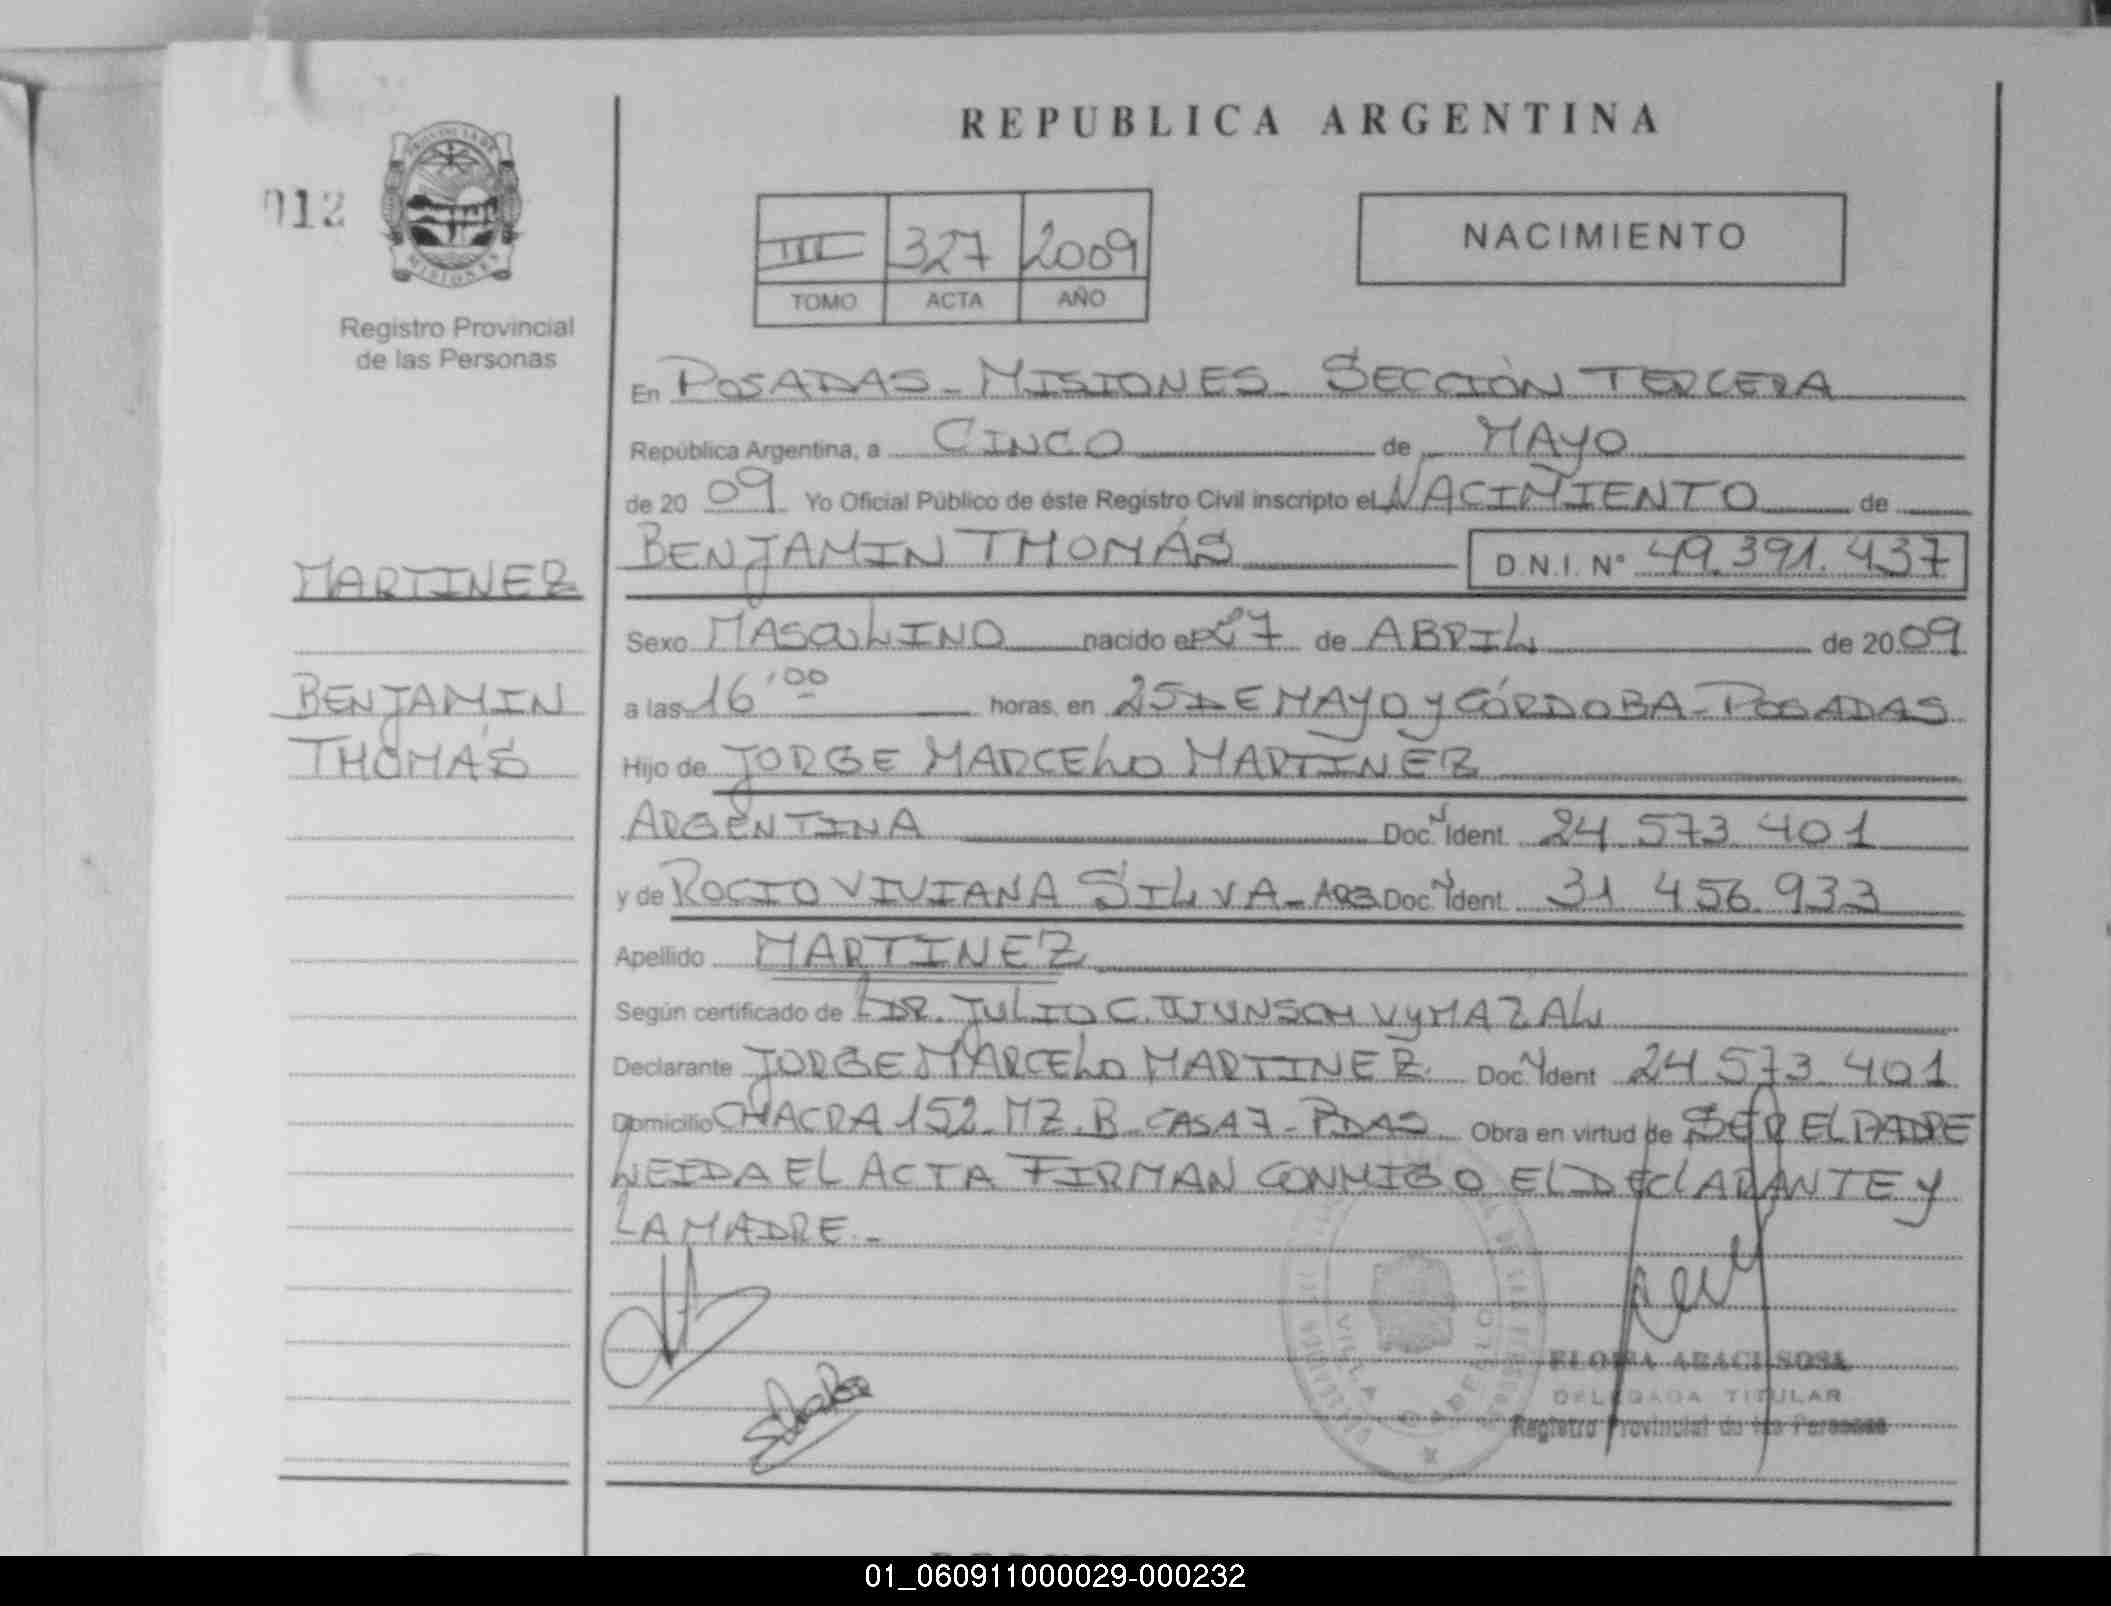 REPUBLICA ARGENTINA
012
PROVINCIA DE
MISIONES
Registro Provincial
de las Personas
III 327 2009
TOMO ACTA AÑO
NACIMIENTO
En POSADAS - MISIONES - SECCIÓN TERCERA
República Argentina, a CINCO de MAYO
de 20 09 Yo Oficial Público de éste Registro Civil inscripto el NACIMIENTO de
BENJAMIN THOMÁS D.N.I. Nº 49.391.437
MARTINEZ
Sexo MASCULINO nacido el 27 de ABRIL de 20 09
BENJAMIN
a las 16'00 horas, en 25 DE MAYO y CÓRDOBA - POSADAS
THOMÁS
Hijo de JORGE MARCELO MARTINEZ
ARGENTINA Doc. Ident. 24 573 401
y de ROCIO VIVIANA SILVA - ARG Doc. Ident. 31 456 933
Apellido MARTINEZ
Según certificado de DR. JULIO C. WUNSCH VYMAZAL
Declarante JORGE MARCELO MARTINEZ Doc. Ident 24 573 401
Domicilio CHACRA 152 MZ. B CASA 7 - PDAS Obra en virtud de SER EL PADRE
LEIDA EL ACTA FIRMAN CONMIGO EL DEClARANTE y
LA MADRE. -
VILLA CABELLO
ARACI SOSA
DELEGADA TITULAR
Registro Provincial de las Personas
01_060911000029-000232